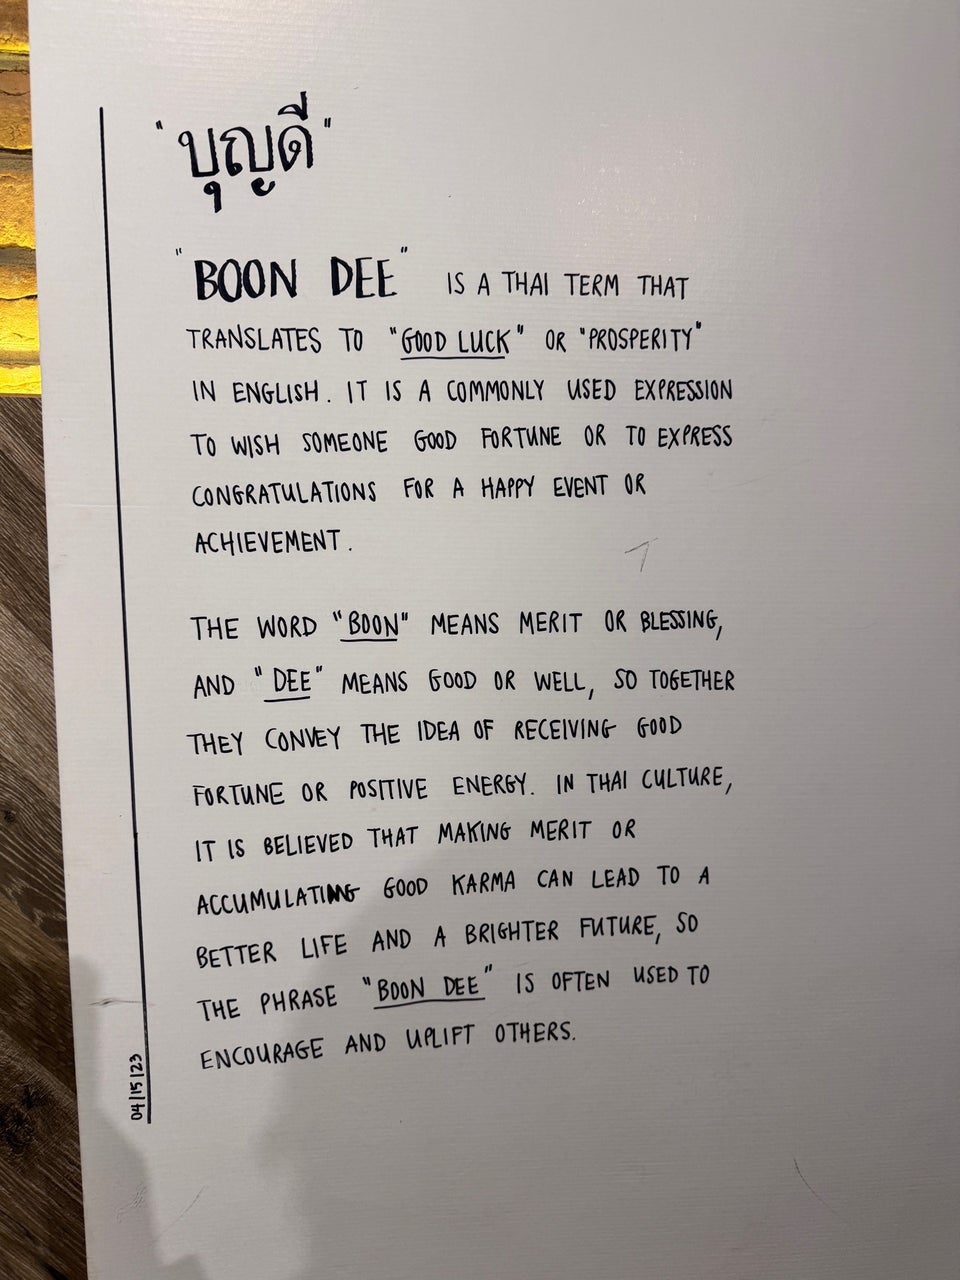 "บุญดี"
"BOON DEE" IS A THAI TERM THAT
TRANSLATES TO "GOOD LUCK" OR "PROSPERITY"
IN ENGLISH. IT IS A COMMONLY USED EXPRESSION
TO WISH SOMEONE GOOD FORTUNE OR TO EXPRESS
CONGRATULATIONS FOR A HAPPY EVENT OR
ACHIEVEMENT.
THE WORD "BOON" MEANS MERIT OR BLESSING,
AND "DEE" MEANS GOOD OR WELL, SO TOGETHER
THEY CONVEY THE IDEA OF RECEIVING GOOD
FORTUNE OR POSITIVE ENERGY. IN THAI CULTURE,
IT IS BELIEVED THAT MAKING MERIT OR
ACCUMULATING GOOD KARMA CAN LEAD TO A
BETTER LIFE AND A BRIGHTER FUTURE, SO
THE PHRASE "BOON DEE" IS OFTEN USED TO
ENCOURAGE AND UPLIFT OTHERS.
04/15/23